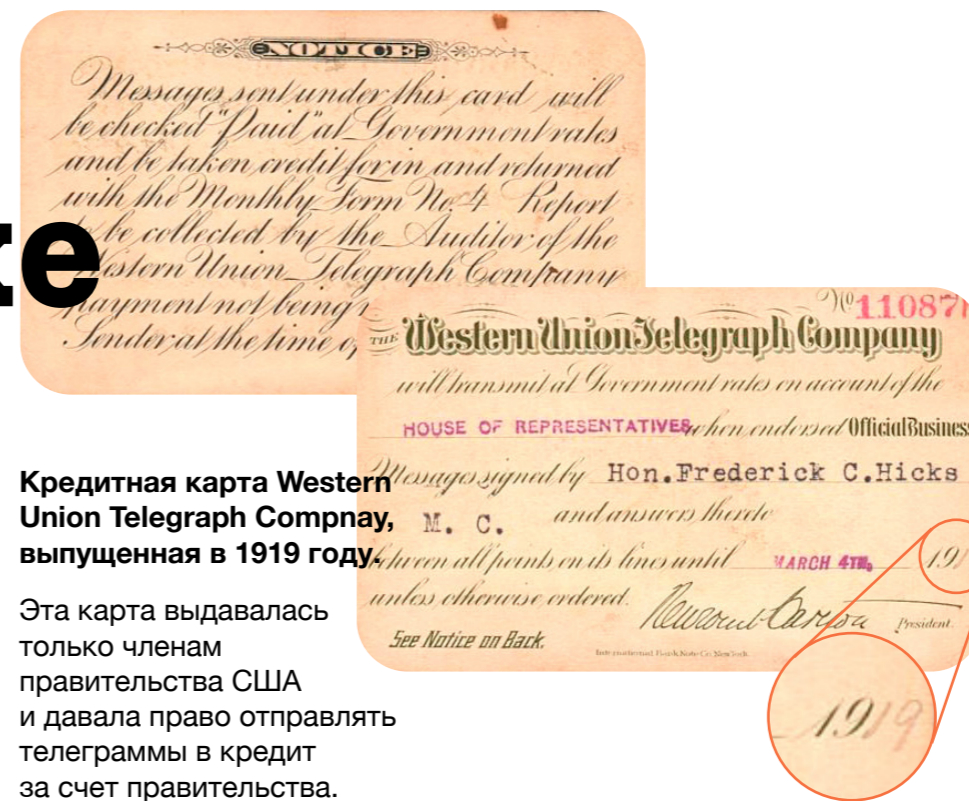 NOTICE
Messages sent under this card will
be checked "Paid" at Government rates
and be taken credit for in and returned
with the Monthly Form No. 4 Report
be collected by the Auditor of the
Western Union Telegraph Company
payment not being
Sender at the time of
ке
No 11087
THE Western Union Telegraph Company
will transmit at Government rates on account of the
HOUSE OF REPRESENTATIVES, when endorsed Official Business
Messages signed by Hon. Frederick C. Hicks
M. C. and answers thereto
between all points on its lines until MARCH 4TH, 191
unless otherwise ordered.
President.
See Notice on Back.
International Bank Note Co. New York.
1919
Кредитная карта Western
Union Telegraph Compnay,
выпущенная в 1919 году.
Эта карта выдавалась
только членам
правительства США
и давала право отправлять
телеграммы в кредит
за счет правительства.